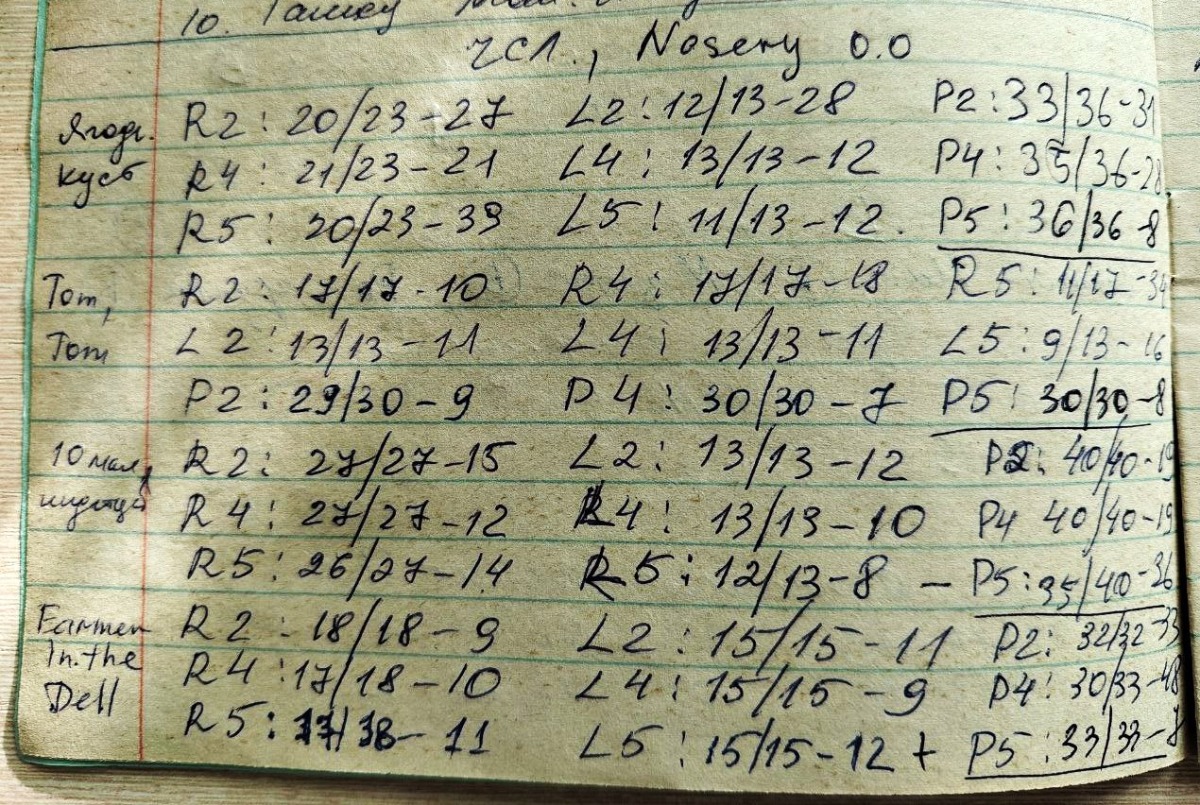 10. Гашку
ЧСЛ., Nosery 0.0
Ягодн. R2: 20/23-27 L2: 12/13-28 P2: 33/36-31
куст R4: 21/23-21 L4: 13/13-12 P4: 35/36-28
R5: 20/23-39 L5: 11/13-12. P5: 36/36-8
Tom, R2: 17/17-10 R4: 17/17-18 R5: 11/17-34
Tom L2: 13/13-11 L4: 13/13-11 L5: 9/13-16
P2: 29/30-9 P4: 30/30-7 P5: 30/30-8
10 мал, R2: 27/27-15 L2: 13/13-12 P2: 40/40-19
R4: 27/27-12 L4: 13/13-10 P4 40/40-19
R5: 26/27-14 R5: 12/13-8 - P5: 35/40-36
Farmer R2: 18/18-9 L2: 15/15-11 P2: 32/32-33
In.the R4: 17/18-10 L4: 15/15-9 P4: 30/33-48
Dell R5: 17/18-11 L5: 15/15-12 + P5: 33/33-7